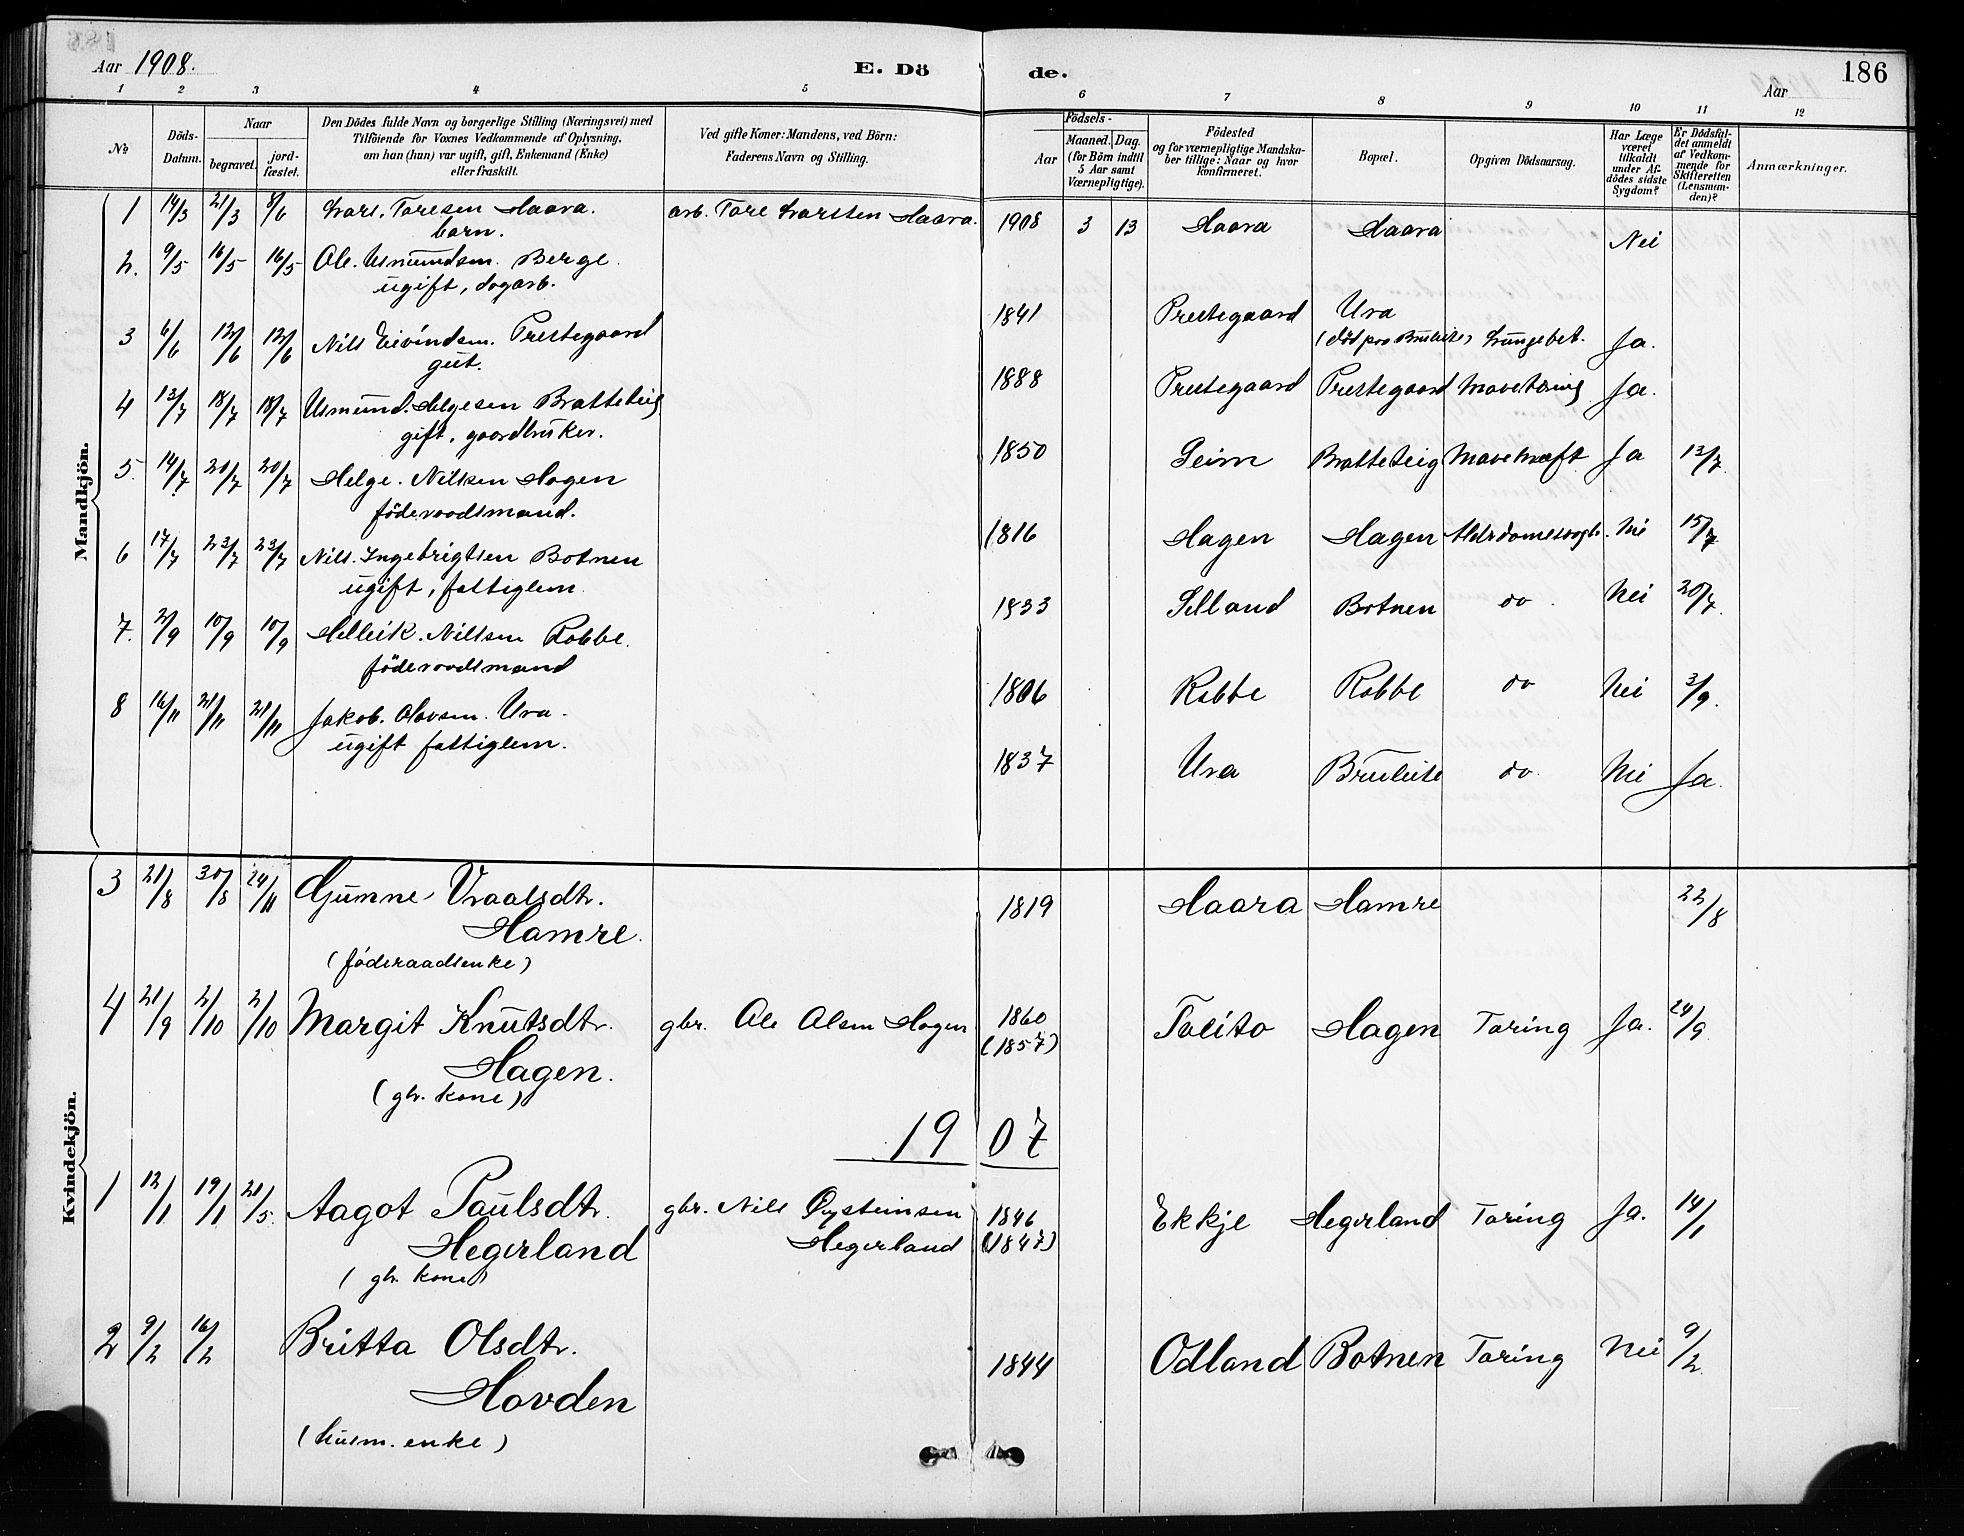 Aar 1908. E. Dö de. Aar 186
1 2 3 4 5 6 7 8 9 10 11 12
No
Döds-Datum.
Naar
begravet.
jord-fæstet.
Den Dödes fulde Navn og borgerlige Stilling (Næringsvei) med
Tilföiende for Voxnes Vedkommende af Oplysning,
om han (hun) var ugift, gift, Enkemand (Enke)
eller fraskilt.
Ved gifte Koner: Mandens, ved Börn:
Faderens Navn og Stilling.
Födsels-
Aar
Maaned. Dag.
(for Börn indtil
5 Aar samt
Værnepligtige).
Födested
og for værnepligtige Mandska-
ber tillige: Naar og hvor
konfirmeret.
Bopæl.
Opgiven Dödsaarsag.
Har Læge
været
tilkaldt
under Af-
dödes sidste
Sygdom?
Er Dödsfal-
det anmeldt
af Vedkom-
mende for
Skifteretten
(Lensman-
den)?
Anmærkninger.
Mandkjön.
1 14/3 21/3 8/6 Lars. Taresen Haara. arb. Tare Larssen Haara. 1908 3 13 Haara Haara Nei
barn.
2. 9/5 16/5 16/5 Ole. Asmundsm. Berge. 1841 Prestegaard Ura
ugift, dagarb. (död paa Bruleite) Lungebet. Ja.
3 6/6 12/6 12/6 Nils Eivindsm. Prestegaard 1888 Prestegaard Prestegaard Mavetæring Ja.
gut.
4 13/7 18/7 18/7 Asmund. Helgesen Bratteteig 1850 Seim Bratteteig Mavekræft Ja 13/7
gift, gaardbruker.
5. 14/7 20/7 20/7 Helge. Nilsen Hagen 1816 Hagen Hagen Alderdomssvagh. Nei 15/7
föderaadsmand.
6 17/7 23/7 23/7 Nils. Ingebrigtsen Botnen 1833 Selland Botnen do Nei 20/7.
ugift, fattiglem
7. 2/9 10/9 10/9 Helleik. Nilsen Rabbe. 1806 Rabbe Rabbe do Nei 3/9.
föderaadsmand
8 16/11 21/11 21/11 Jakob. Olavsen. Ura. 1837 Ura Bruleite do Nei Ja.
ugift fattiglem.
Kvindekjön.
3 21/8 30/8 24/11 Gunne Vraalsdtr. 1819 Haara Hamre 22/8
Hamre.
(föderaadsenke)
4 21/9 2/10 2/10 Margit Knutsdtr. gbr. Ole Olsen Hagen 1860 Hagen Tæring Ja. 24/9
Hagen. (1857)
(gbr. kone)
1907
1 12/1 19/1 21/5. Aagot Paulsdtr. gbr. Nils Øysteinsen 1846 Ekkje Hegerland Tæring Ja. 14/1
Hegerland Hegerland (1847)
(gbr. kone)
2 9/2 16/2 Britta Olsdtr. 1844 Odland Botnen Tæring Nei 9/2
Hovden
(husm. enke)